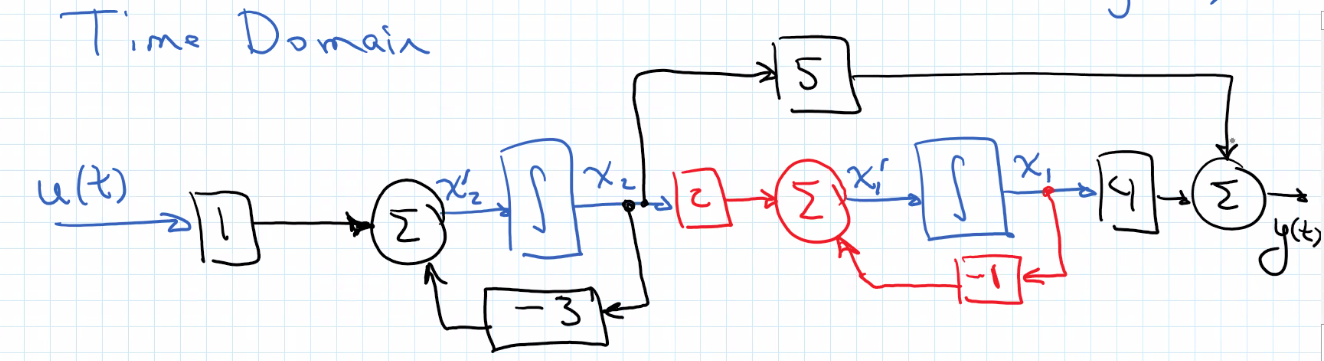 Time Domain
5
u(t)
1
Σ
x₂'
∫
x₂
2
Σ
x₁'
∫
x₁
4
Σ
y(t)
-3
-1